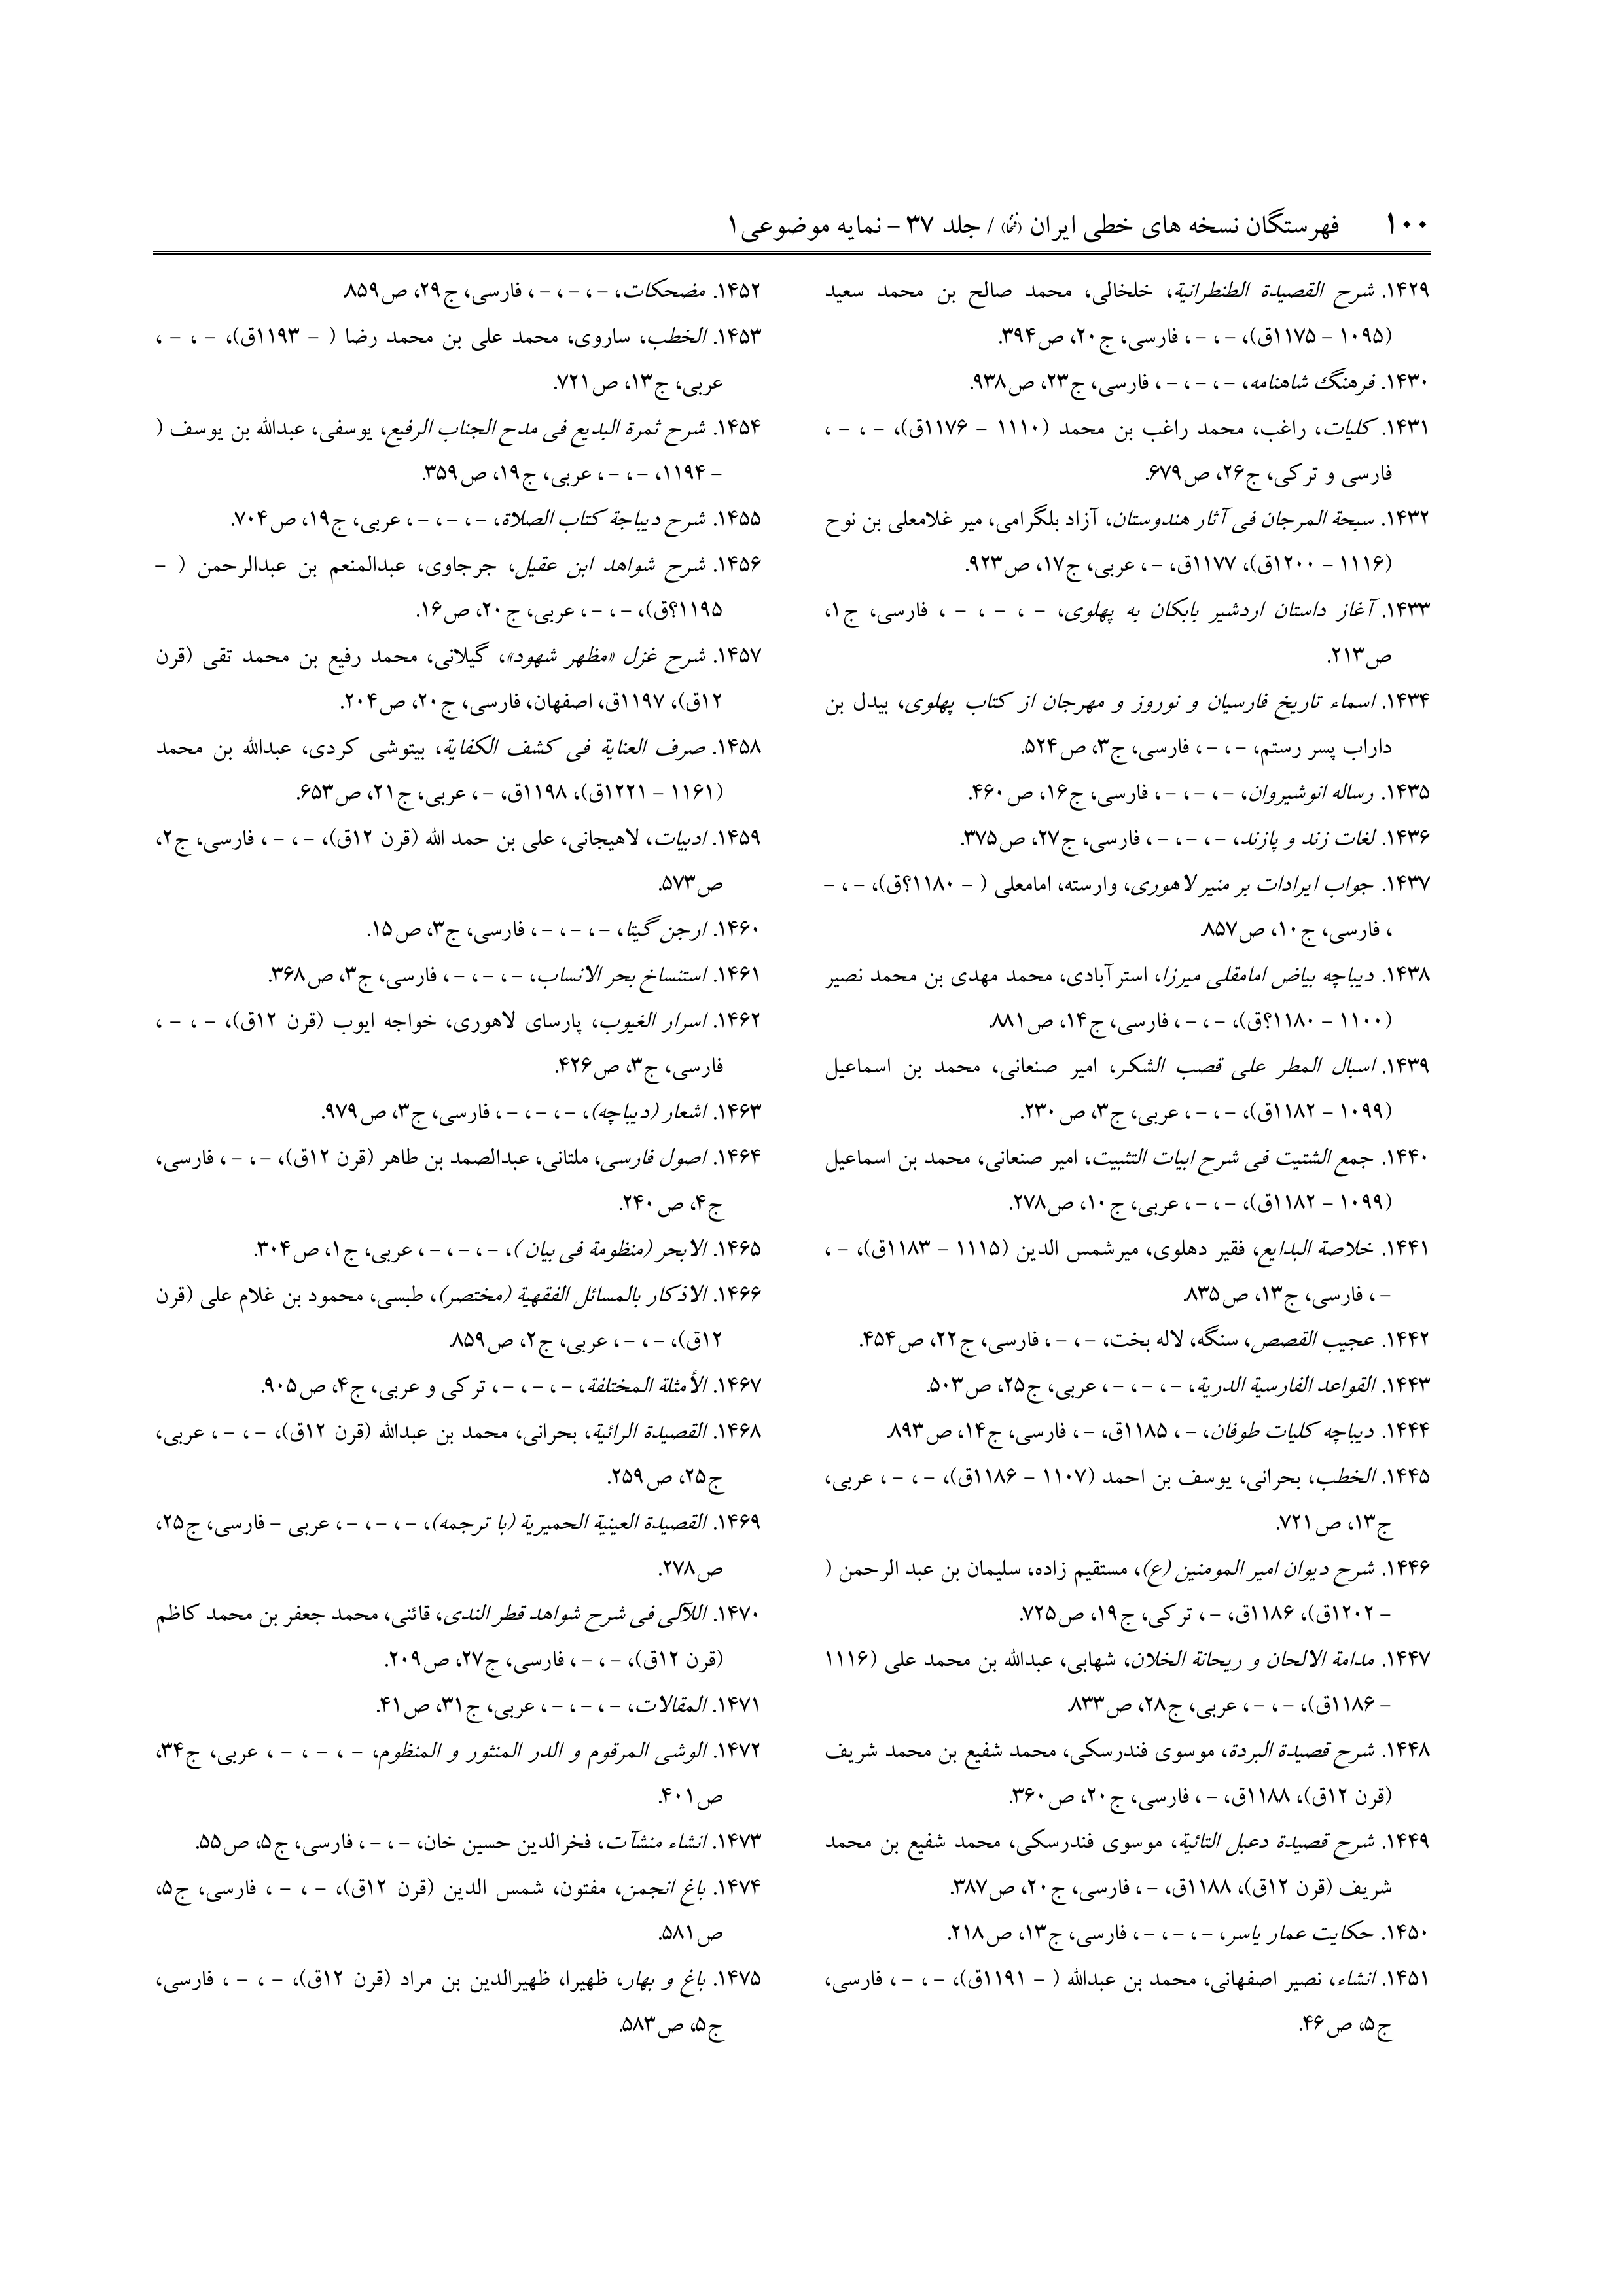 ۱۰۰ فهرستگان نسخه های خطی ایران (فنخا) / جلد ۳۷ – نمایه موضوعی۱
۱۴۲۹. شرح القصیدة الطنطرانیة، خلخالی، محمد صالح بن محمد سعید
(۱۰۹۵ – ۱۱۷۵ق)، – ، – ، فارسی، ج۲۰، ص۳۹۴.
۱۴۳۰. فرهنگ شاهنامه، – ، – ، – ، فارسی، ج۲۳، ص۹۳۸.
۱۴۳۱. کلیات، راغب، محمد راغب بن محمد (۱۱۱۰ – ۱۱۷۶ق)، – ، – ،
فارسی و ترکی، ج۲۶، ص۶۷۹.
۱۴۳۲. سبحة المرجان فی آثار هندوستان، آزاد بلگرامی، میر غلامعلی بن نوح
(۱۱۱۶ – ۱۲۰۰ق)، ۱۱۷۷ق، – ، عربی، ج۱۷، ص۹۲۳.
۱۴۳۳. آغاز داستان اردشیر بابکان به پهلوی، – ، – ، – ، فارسی، ج۱،
ص۲۱۳.
۱۴۳۴. اسماء تاریخ فارسیان و نوروز و مهرجان از کتاب پهلوی، بیدل بن
داراب پسر رستم، – ، – ، فارسی، ج۳، ص۵۲۴.
۱۴۳۵. رساله انوشیروان، – ، – ، – ، فارسی، ج۱۶، ص۴۶۰.
۱۴۳۶. لغات زند و پازند، – ، – ، – ، فارسی، ج۲۷، ص۳۷۵.
۱۴۳۷. جواب ایرادات بر منیر لاهوری، وارسته، امامعلی ( – ۱۱۸۰؟ق)، – ، –
، فارسی، ج۱۰، ص۸۵۷.
۱۴۳۸. دیباچه بیاض امامقلی میرزا، استرآبادی، محمد مهدی بن محمد نصیر
(۱۱۰۰ – ۱۱۸۰؟ق)، – ، – ، فارسی، ج۱۴، ص۸۸۱.
۱۴۳۹. اسبال المطر علی قصب الشکر، امیر صنعانی، محمد بن اسماعیل
(۱۰۹۹ – ۱۱۸۲ق)، – ، – ، عربی، ج۳، ص۲۳۰.
۱۴۴۰. جمع الشتیت فی شرح ابیات التثبیت، امیر صنعانی، محمد بن اسماعیل
(۱۰۹۹ – ۱۱۸۲ق)، – ، – ، عربی، ج۱۰، ص۲۷۸.
۱۴۴۱. خلاصة البدایع، فقیر دهلوی، میرشمس الدین (۱۱۱۵ – ۱۱۸۳ق)، – ،
– ، فارسی، ج۱۳، ص۸۳۵.
۱۴۴۲. عجیب القصص، سنگه، لاله بخت، – ، – ، فارسی، ج۲۲، ص۴۵۴.
۱۴۴۳. القواعد الفارسیة الدریة، – ، – ، – ، عربی، ج۲۵، ص۵۰۳.
۱۴۴۴. دیباچه کلیات طوفان، – ، ۱۱۸۵ق، – ، فارسی، ج۱۴، ص۸۹۳.
۱۴۴۵. الخطب، بحرانی، یوسف بن احمد (۱۱۰۷ – ۱۱۸۶ق)، – ، – ، عربی،
ج۱۳، ص۷۲۱.
۱۴۴۶. شرح دیوان امیر المومنین (ع)، مستقیم زاده، سلیمان بن عبد الرحمن (
– ۱۲۰۲ق)، ۱۱۸۶ق، – ، ترکی، ج۱۹، ص۷۲۵.
۱۴۴۷. مدامة الالحان و ریحانة الخلان، شهابی، عبدالله بن محمد علی (۱۱۱۶
– ۱۱۸۶ق)، – ، – ، عربی، ج۲۸، ص۸۳۳.
۱۴۴۸. شرح قصیدة البردة، موسوی فندرسکی، محمد شفیع بن محمد شریف
(قرن ۱۲ق)، ۱۱۸۸ق، – ، فارسی، ج۲۰، ص۳۶۰.
۱۴۴۹. شرح قصیدة دعبل التائیة، موسوی فندرسکی، محمد شفیع بن محمد
شریف (قرن ۱۲ق)، ۱۱۸۸ق، – ، فارسی، ج۲۰، ص۳۸۷.
۱۴۵۰. حکایت عمار یاسر، – ، – ، – ، فارسی، ج۱۳، ص۲۱۸.
۱۴۵۱. انشاء، نصیر اصفهانی، محمد بن عبدالله ( – ۱۱۹۱ق)، – ، – ، فارسی،
ج۵، ص۴۶.
۱۴۵۲. مضحکات، – ، – ، – ، فارسی، ج۲۹، ص۸۵۹.
۱۴۵۳. الخطب، ساروی، محمد علی بن محمد رضا ( – ۱۱۹۳ق)، – ، – ،
عربی، ج۱۳، ص۷۲۱.
۱۴۵۴. شرح ثمرة البدیع فی مدح الجناب الرفیع، یوسفی، عبدالله بن یوسف (
– ۱۱۹۴، – ، – ، عربی، ج۱۹، ص۳۵۹.
۱۴۵۵. شرح دیباجة کتاب الصلاة، – ، – ، – ، عربی، ج۱۹، ص۷۰۴.
۱۴۵۶. شرح شواهد ابن عقیل، جرجاوی، عبدالمنعم بن عبدالرحمن ( –
۱۱۹۵؟ق)، – ، – ، عربی، ج۲۰، ص۱۶.
۱۴۵۷. شرح غزل «مظهر شهود»، گیلانی، محمد رفیع بن محمد تقی (قرن
۱۲ق)، ۱۱۹۷ق، اصفهان، فارسی، ج۲۰، ص۲۰۴.
۱۴۵۸. صرف العنایة فی کشف الکفایة، بیتوشی کردی، عبدالله بن محمد
(۱۱۶۱ – ۱۲۲۱ق)، ۱۱۹۸ق، – ، عربی، ج۲۱، ص۶۵۳.
۱۴۵۹. ادبیات، لاهیجانی، علی بن حمد الله (قرن ۱۲ق)، – ، – ، فارسی، ج۲،
ص۵۷۳.
۱۴۶۰. ارجن گیتا، – ، – ، – ، فارسی، ج۳، ص۱۵.
۱۴۶۱. استنساخ بحر الانساب، – ، – ، – ، فارسی، ج۳، ص۳۶۸.
۱۴۶۲. اسرار الغیوب، پارسای لاهوری، خواجه ایوب (قرن ۱۲ق)، – ، – ،
فارسی، ج۳، ص۴۲۶.
۱۴۶۳. اشعار (دیباچه)، – ، – ، – ، فارسی، ج۳، ص۹۷۹.
۱۴۶۴. اصول فارسی، ملتانی، عبدالصمد بن طاهر (قرن ۱۲ق)، – ، – ، فارسی،
ج۴، ص۲۴۰.
۱۴۶۵. الابحر (منظومة فی بیان )، – ، – ، – ، عربی، ج۱، ص۳۰۴.
۱۴۶۶. الاذکار بالمسائل الفقهیة (مختصر)، طبسی، محمود بن غلام علی (قرن
۱۲ق)، – ، – ، عربی، ج۲، ص۸۵۹.
۱۴۶۷. الأمثلة المختلفة، – ، – ، – ، ترکی و عربی، ج۴، ص۹۰۵.
۱۴۶۸. القصیدة الرائیة، بحرانی، محمد بن عبدالله (قرن ۱۲ق)، – ، – ، عربی،
ج۲۵، ص۲۵۹.
۱۴۶۹. القصیدة العینیة الحمیریة (با ترجمه)، – ، – ، – ، عربی – فارسی، ج۲۵،
ص۲۷۸.
۱۴۷۰. اللآلی فی شرح شواهد قطر الندی، قائنی، محمد جعفر بن محمد کاظم
(قرن ۱۲ق)، – ، – ، فارسی، ج۲۷، ص۲۰۹.
۱۴۷۱. المقالات، – ، – ، – ، عربی، ج۳۱، ص۴۱.
۱۴۷۲. الوشی المرقوم و الدر المنثور و المنظوم، – ، – ، – ، عربی، ج۳۴،
ص۴۰۱.
۱۴۷۳. انشاء منشآت، فخرالدین حسین خان، – ، – ، فارسی، ج۵، ص۵۵.
۱۴۷۴. باغ انجمن، مفتون، شمس الدین (قرن ۱۲ق)، – ، – ، فارسی، ج۵،
ص۵۸۱.
۱۴۷۵. باغ و بهار، ظهیرا، ظهیرالدین بن مراد (قرن ۱۲ق)، – ، – ، فارسی،
ج۵، ص۵۸۳.